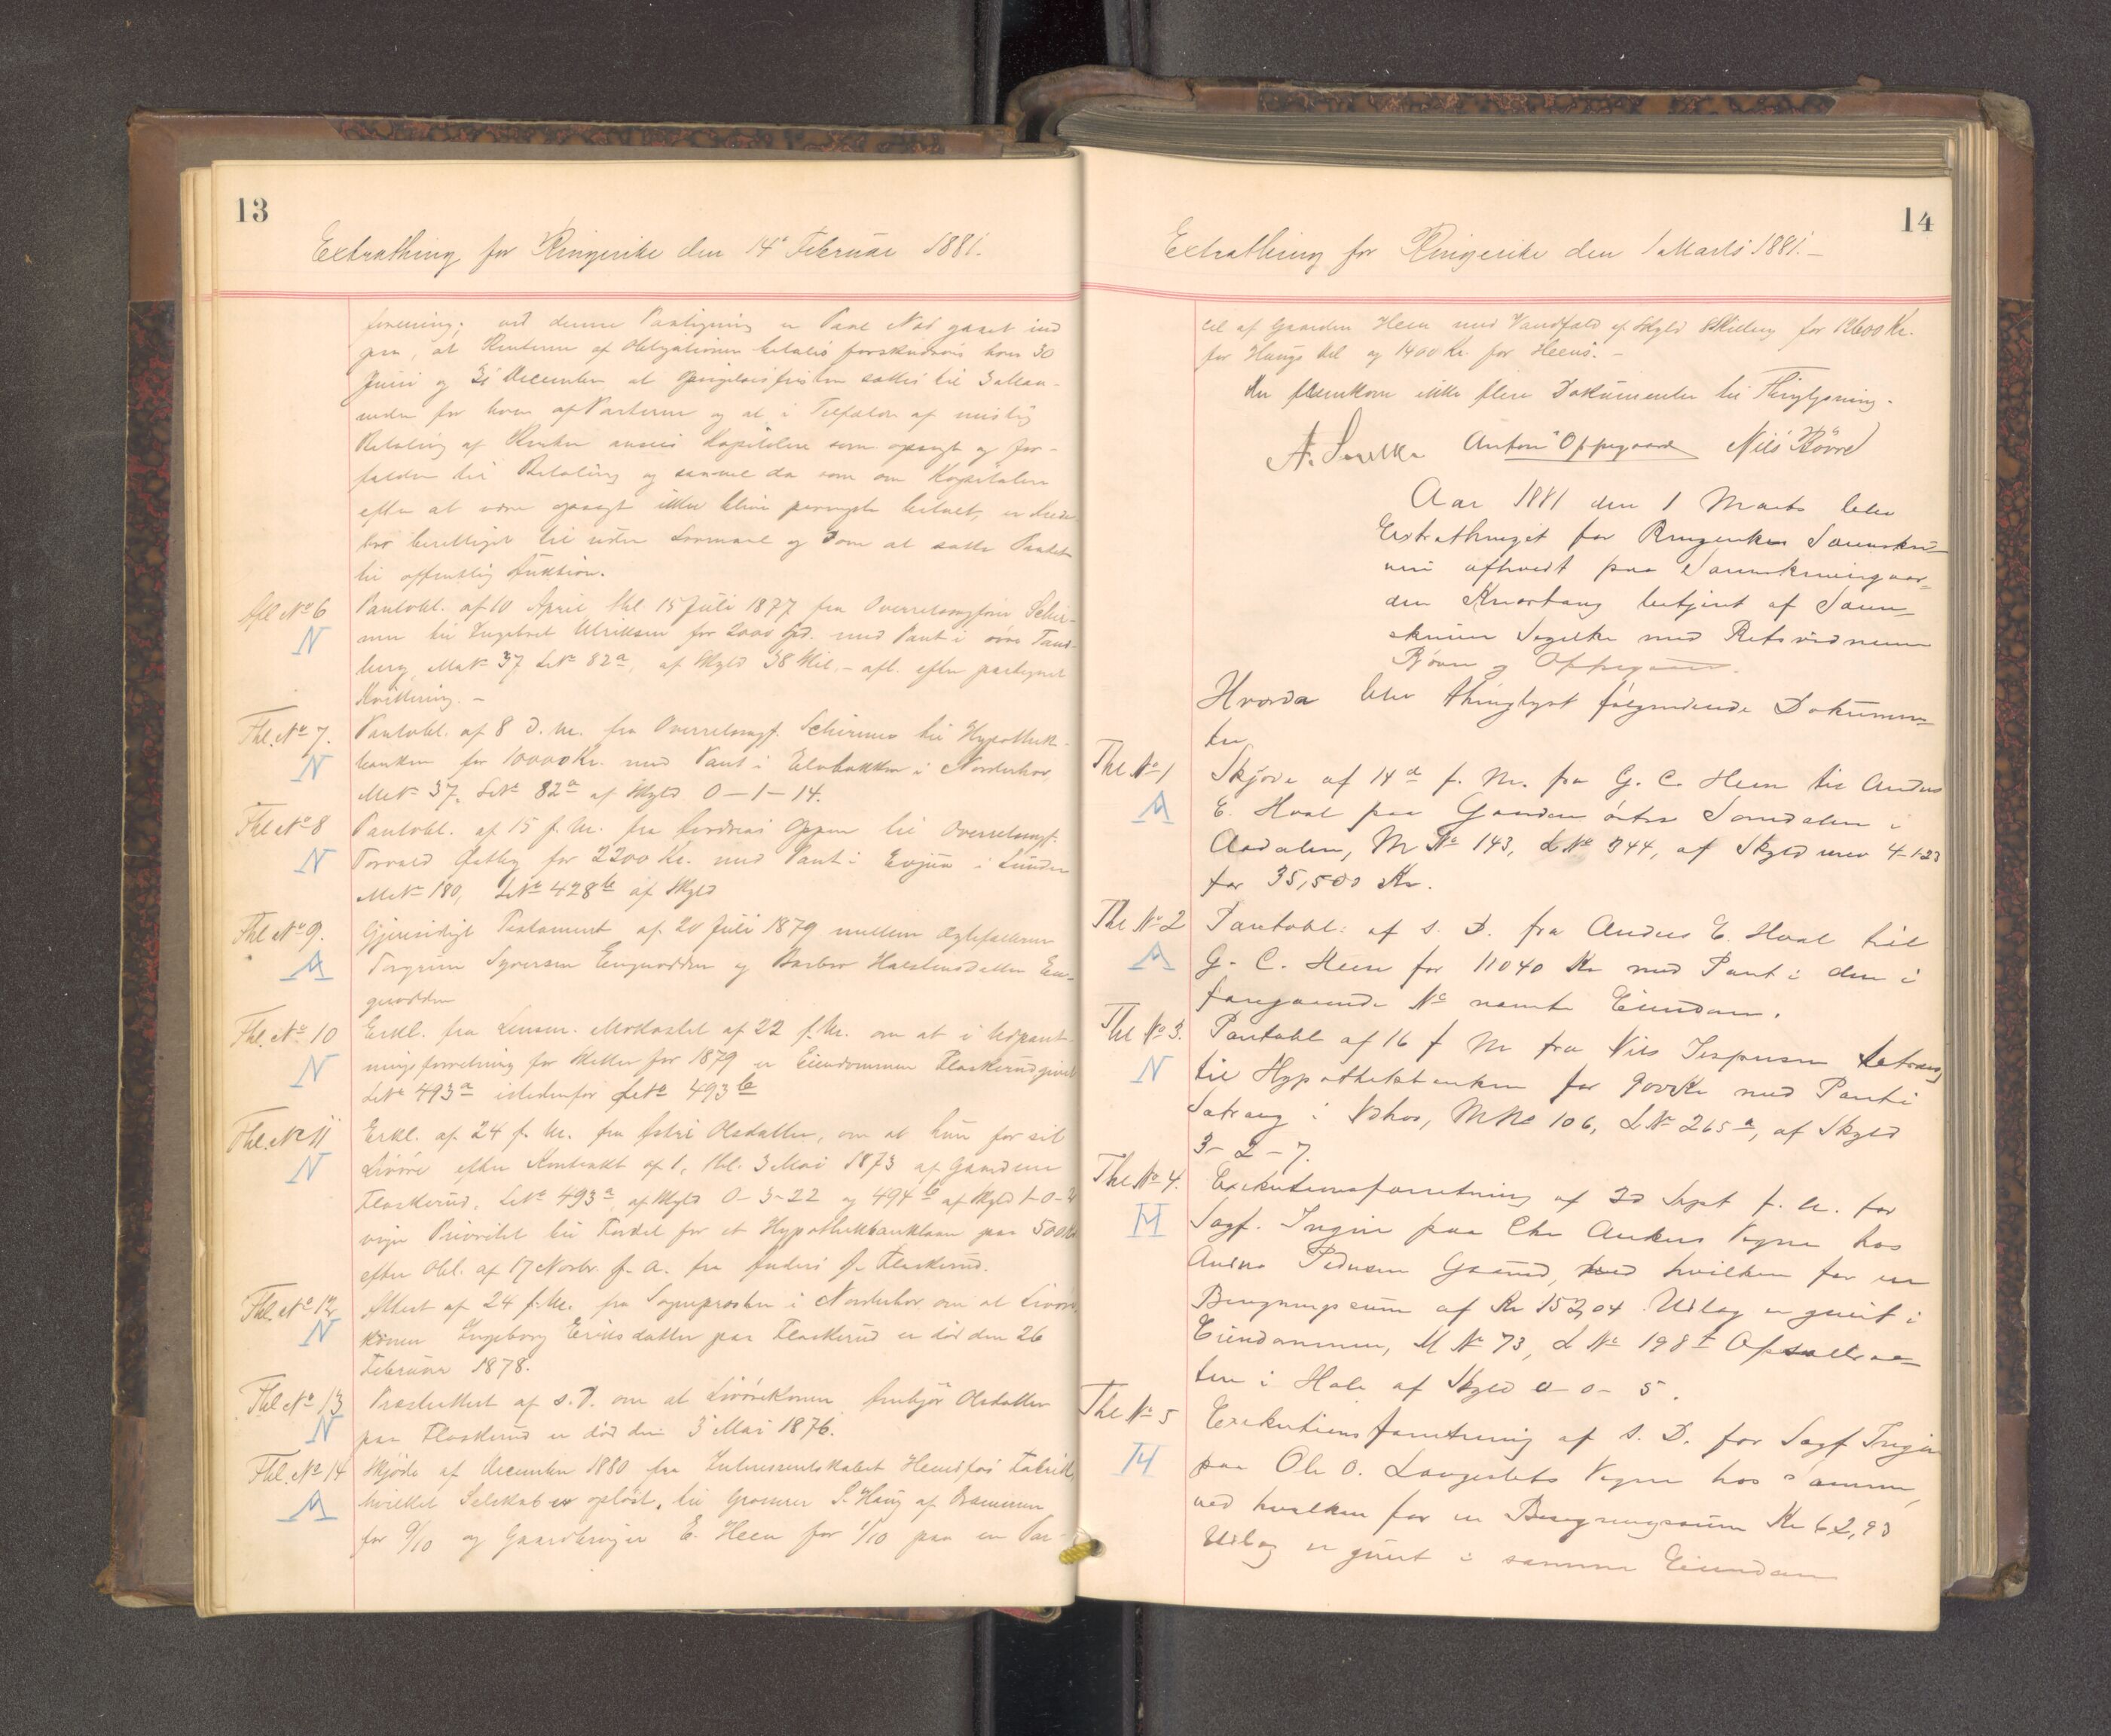 13
Extrathing for Ringerike den 14de Februar 1881.
forening; ved denne Paategning er Paal Næs gaaet ind
paa, at Renterne af Obligationen betales forskudsvis hver 30
Juni og 31 December, at Opsigelsesfristen sættes til 3 Maa-
neder for hver af Parterne og at i Tilfælde af mislig
Betaling af Renter ansees Kapitalen som opsagt og for-
falden til Betaling og samme da som om Kapitalen
efter at være opsagt ikke bliver promte betalt, er Kredi-
tor berettiget til uden Lovmaal og Dom at sætte Pantet
til offentlig Auktion.
Afl. No 6
Pantobl. af 10 April thl. 15 Juli 1877 fra Overretssagfører Schir-
N
mer til Ingebret Ulriksen for 2000 Spd. med Pant i øvre Tand-
berg, MNo 37 LNo 82a, af Skyld 38 Skil. - afl. efter paategnet
Kvittering. -
Thl. No 7.
Pantobl. af 8 d. M. fra Overretssagf. Schirmer til Hypothek-
N
banken for 10000 Kr. med Pant i Elvebakken i Norderhov,
MNo 37, LNo 82a af Skyld 0-1-14.
Thl No 8
Pantobl. af 15 f. M. fra Andreas Oppen til Overretssagf.
N
Torvald Østby for 2200 Kr. med Pant i Evjua i Lunder
MNo 180, LNo 428b af Skyld
Thl No 9.
Gjensidigt Testament af 20 Juli 1879 mellem Ægtefællerne
A
Torgrim Syversen Engnodden og Barbro Halstensdatter En-
gnodden
Thl. No 10
Erkl. fra Lensm. Modastet af 22 f. M. om at i Udpant-
N
ningsforretning for Skatter for 1879 er Eiendommen Flaskerud givet
LNo 493a istedenfor LNo 493b
Thl. No 11
Erkl. af 24 f. M. fra Astri Olsdatter, om at hun for sit
N
Livøre efter Kontrakt af 1, thl. 3 Mai 1873 af Gaardene
Flaskerud, LNo 493a, af Skyld 0-3-22 og 494b af Skyld 1-0-2
viger Prioritet til Fordel for et Hypothekbanklaan paa 500 Kr
efter Obl. af 17 Novbr. f. A. fra Anders O. Flaskerud.
Thl. No 12
Attest af 24 f. M. fra Sognepræsten i Norderhov om at Livøre-
N
konen Ingeborg Eriksdatter paa Flaskerud er død den 26
Februar 1878.
Thl No 13
Præsteattest af s. D. om at Livørekonen Ambjør Olsdatter
N
paa Flaskerud er død den 3 Mai 1876.
Thl. No 14
Skjøde af December 1880 fra Interessentskabet Heensfos Fabrik,
A
hvilket Selskab er opløst, til Grosserer S. Haug af Drammen
for 9/10 og Gaardbruger E. Heen for 1/10 paa en Par-
14
Extrathing for Ringerike den 1 Marts 1881. -
cel af Gaarden Heen med Vandfald af Skyld 8 Skilling for 12600 Kr.
for Haugs Del og 1400 Kr. for Heens. -
Der fremkom ikke flere Dokumenter til Thinglysning.
A. Smelke Anton Oppegaard Nils Røvre
Aar 1881 den 1 Marts blev
Extrathinget for Ringerikes Sorenskri-
veri afholdt paa Sorenskrivergaar-
den Knæstang betjent af Soren-
skriver Segelke med Retsvidnerne
Røvre og Oppegaard.
Hvorda blev thinglyst følgendende Dokumen-
ter
Thl No 1
Skjøde af 14de f. M. fra G. C. Heen til Anders
A
E. Hval paa Gaarden østre Somdalen i
Aadalen, M No 143, L No 344, af Skyld urev 4-1-23
for 35,500 Kr.
Thl No 2
Pantobl: af s. D. fra Anders E. Hval til
A
G. C. Heen for 11040 Kr med Pant i den i
foregaaende No nævnte Eiendom.
Thl No 3.
Pantobl af 16 f M fra Nils Jespersen Setrang
N
til Hypothekbanken for 900 Kr med Pant i
Setrang i Nhov, M No 106, L No 265a, af Skyld
3-2-7.
Thl No 4.
Exekutionsforretning af 20 Sept f. A. for
H
Sagf. Ingier paa Chr Ankers Vegne hos
Anders Pedersen Gaarud, ved hvilken for en
Bergningssum af Kr 152,04 Udlæg er givet i
Eiendommen, M No 73, L No 198f Opsalbraa-
ten i Hole af Skyld 0-0-5.
Thl No 5
Exekutionsforretning af s. D. for Sagf Ingier
H
paa Ole O. Langeslets Vegne hos samme,
ved hvilken for en Beregningssum Kr 62,93
Udlæg er givet i samme Eiendom